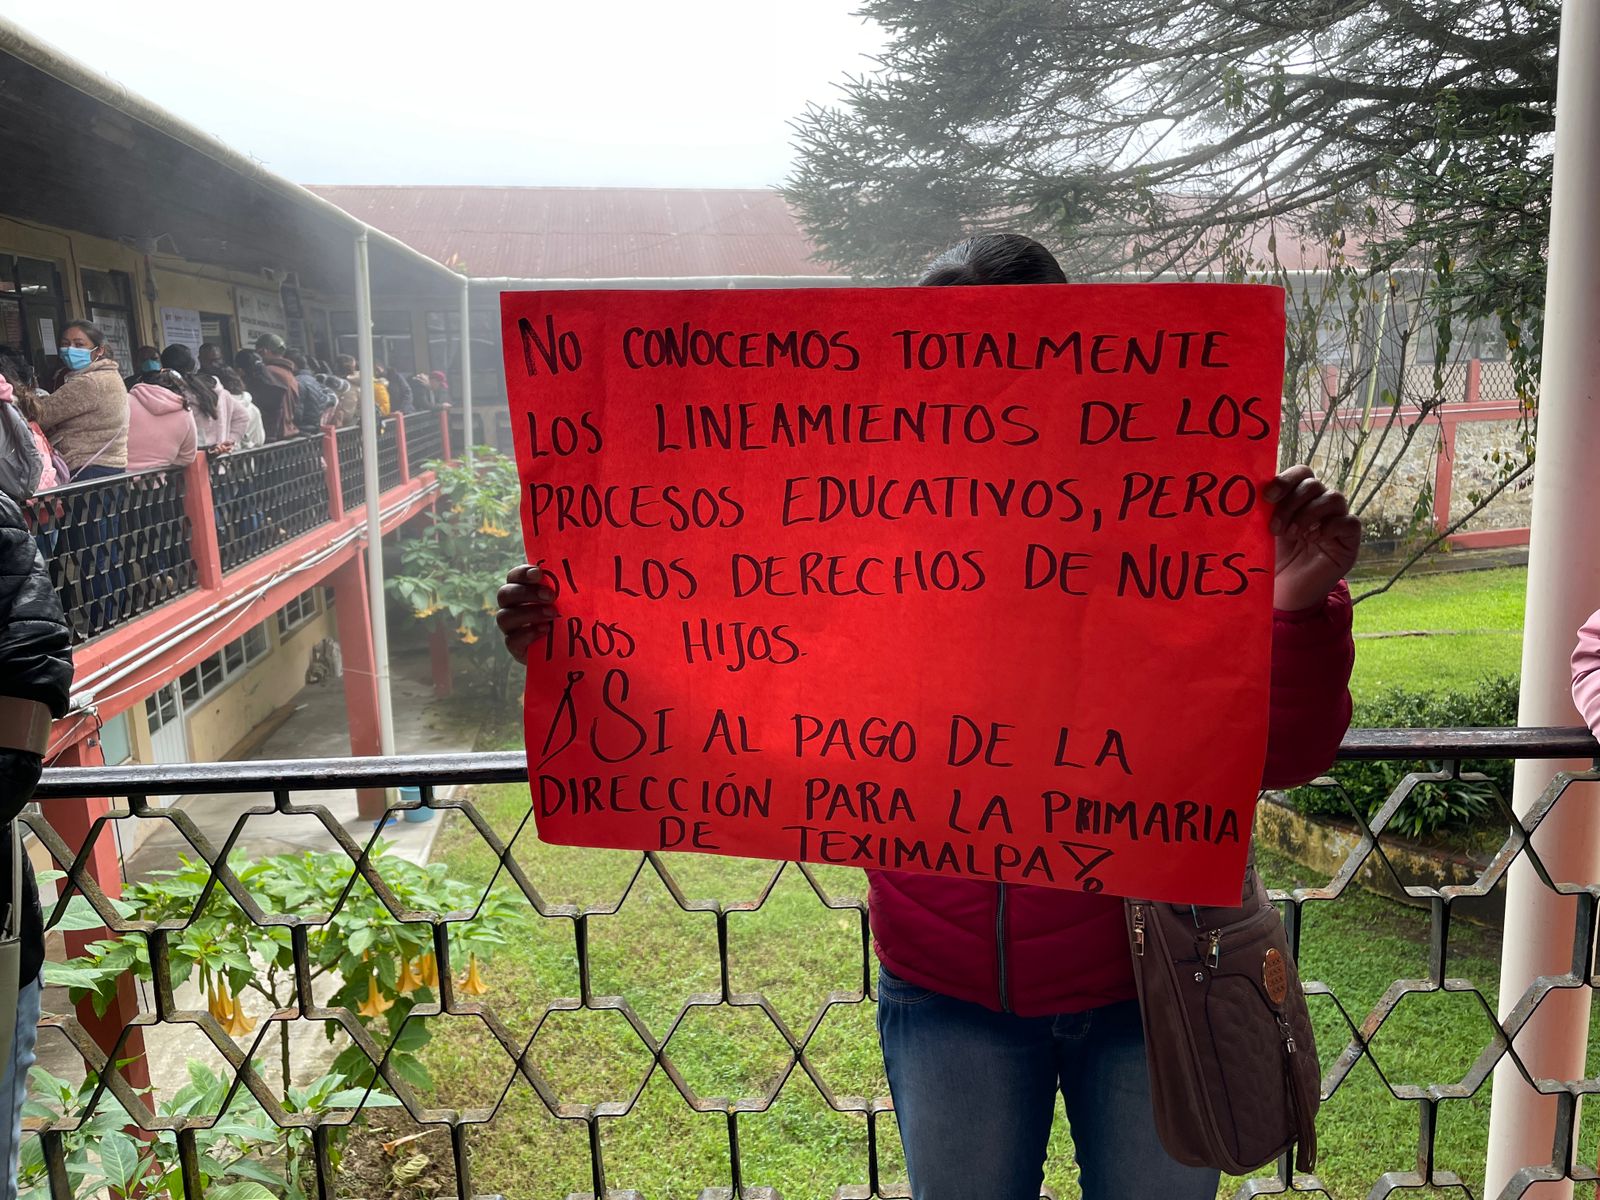 No CONOCEMOS TOTALMENTE
LOS LINEAMIENTOS DE LOS
PROCESOS EDUCATIVOS, PERO
SI LOS DERECHOS DE NUES-
TROS HIJOS.
¡SI AL PAGO DE LA
DIRECCIÓN PARA LA PRIMARIA
DE TEXIMALPA!